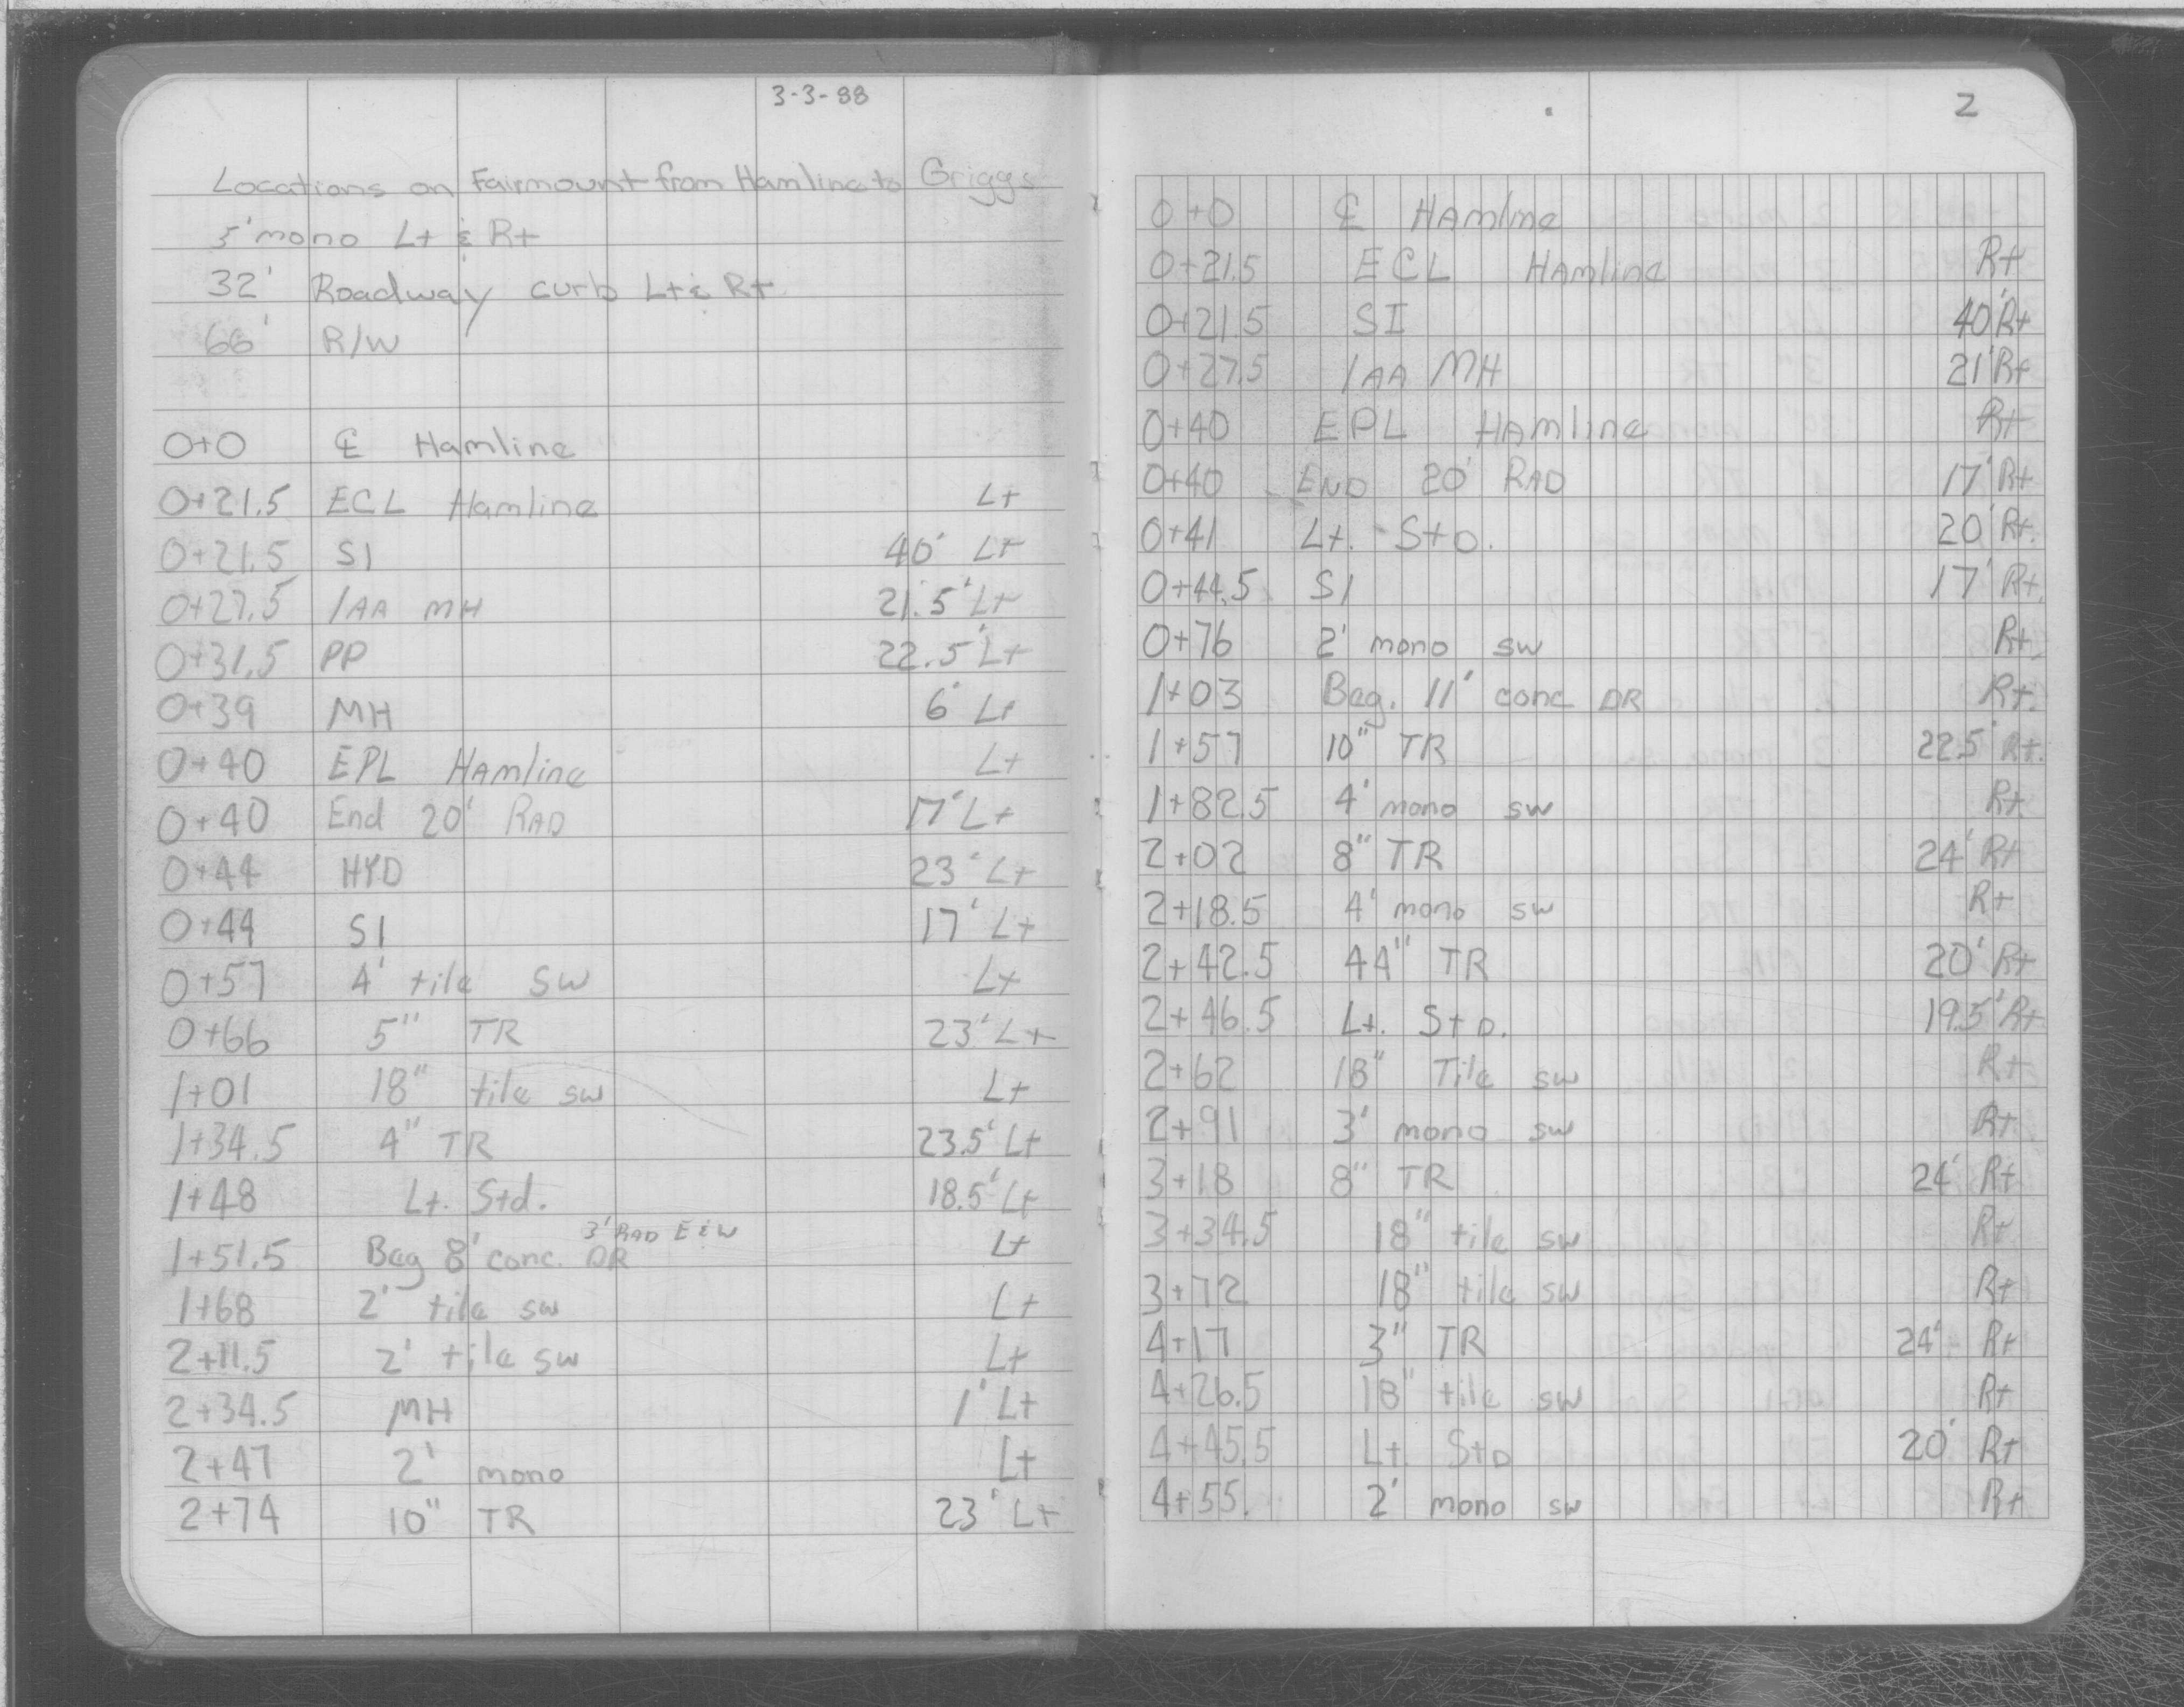 3-3-88
Locations on Fairmount from Hamline to Griggs
5' mono Lt & Rt
32' Roadway curb Lt & Rt
66' R/W
0+0 ℄ Hamline
0+21.5 ECL Hamline Lt
0+21.5 SI 40' Lt
0+27.5 1AA MH 21.5' Lt
0+31.5 PP 22.5' Lt
0+39 MH 6' Lt
0+40 EPL Hamline Lt
0+40 End 20' RAD 17' Lt
0+44 HYD 23' Lt
0+44 SI 17' Lt
0+57 4' tile sw Lt
0+66 5" TR 23' Lt
1+01 18" tile sw Lt
1+34.5 4" TR 23.5' Lt
1+48 Lt. Std. 18.5' Lt
3' RAD E & W
1+51.5 Beg 8' conc. DR Lt
1+68 2' tile sw Lt
2+11.5 2' tile sw Lt
2+34.5 MH 1' Lt
2+47 2' mono Lt
2+74 10" TR 23' Lt
2
0+0 ℄ Hamline
0+21.5 ECL Hamline Rt
0+21.5 SI 40' Rt
0+27.5 1AA MH 21' Rt
0+40 EPL Hamline Rt
0+40 END 20' RAD 17' Rt
0+41 Lt. StD. 20' Rt.
0+44.5 SI 17' Rt.
0+76 2' mono sw Rt.
1+03 Beg. 11' conc DR Rt.
1+57 10" TR 22.5' Rt.
1+82.5 4' mono sw Rt
2+02 8" TR 24' Rt
2+18.5 4' mono sw Rt
2+42.5 44" TR 20' Rt
2+46.5 Lt. StD. 19.5' Rt
2+62 18" Tile sw Rt
2+91 3' mono sw Rt
3+18 8" TR 24' Rt
3+34.5 18" tile sw Rt
3+72 18" tile sw Rt
4+17 3" TR 24' Rt
4+26.5 18" tile sw Rt
4+45.5 Lt. StD 20' Rt
4+55. 2' mono sw Rt